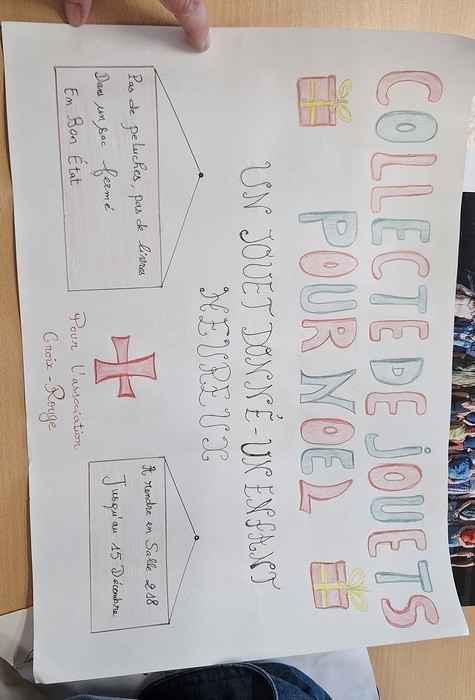 COLLECTE DE JOUETS
POUR NOEL
UN JOUET DONNÉ - UN ENFANT
HEUREUX
Pas de peluches, pas de livres
Dans un sac fermé
En Bon État
Pour l'association
Croix-Rouge
A rendre en Salle 218
Jusqu'au 15 Décembre